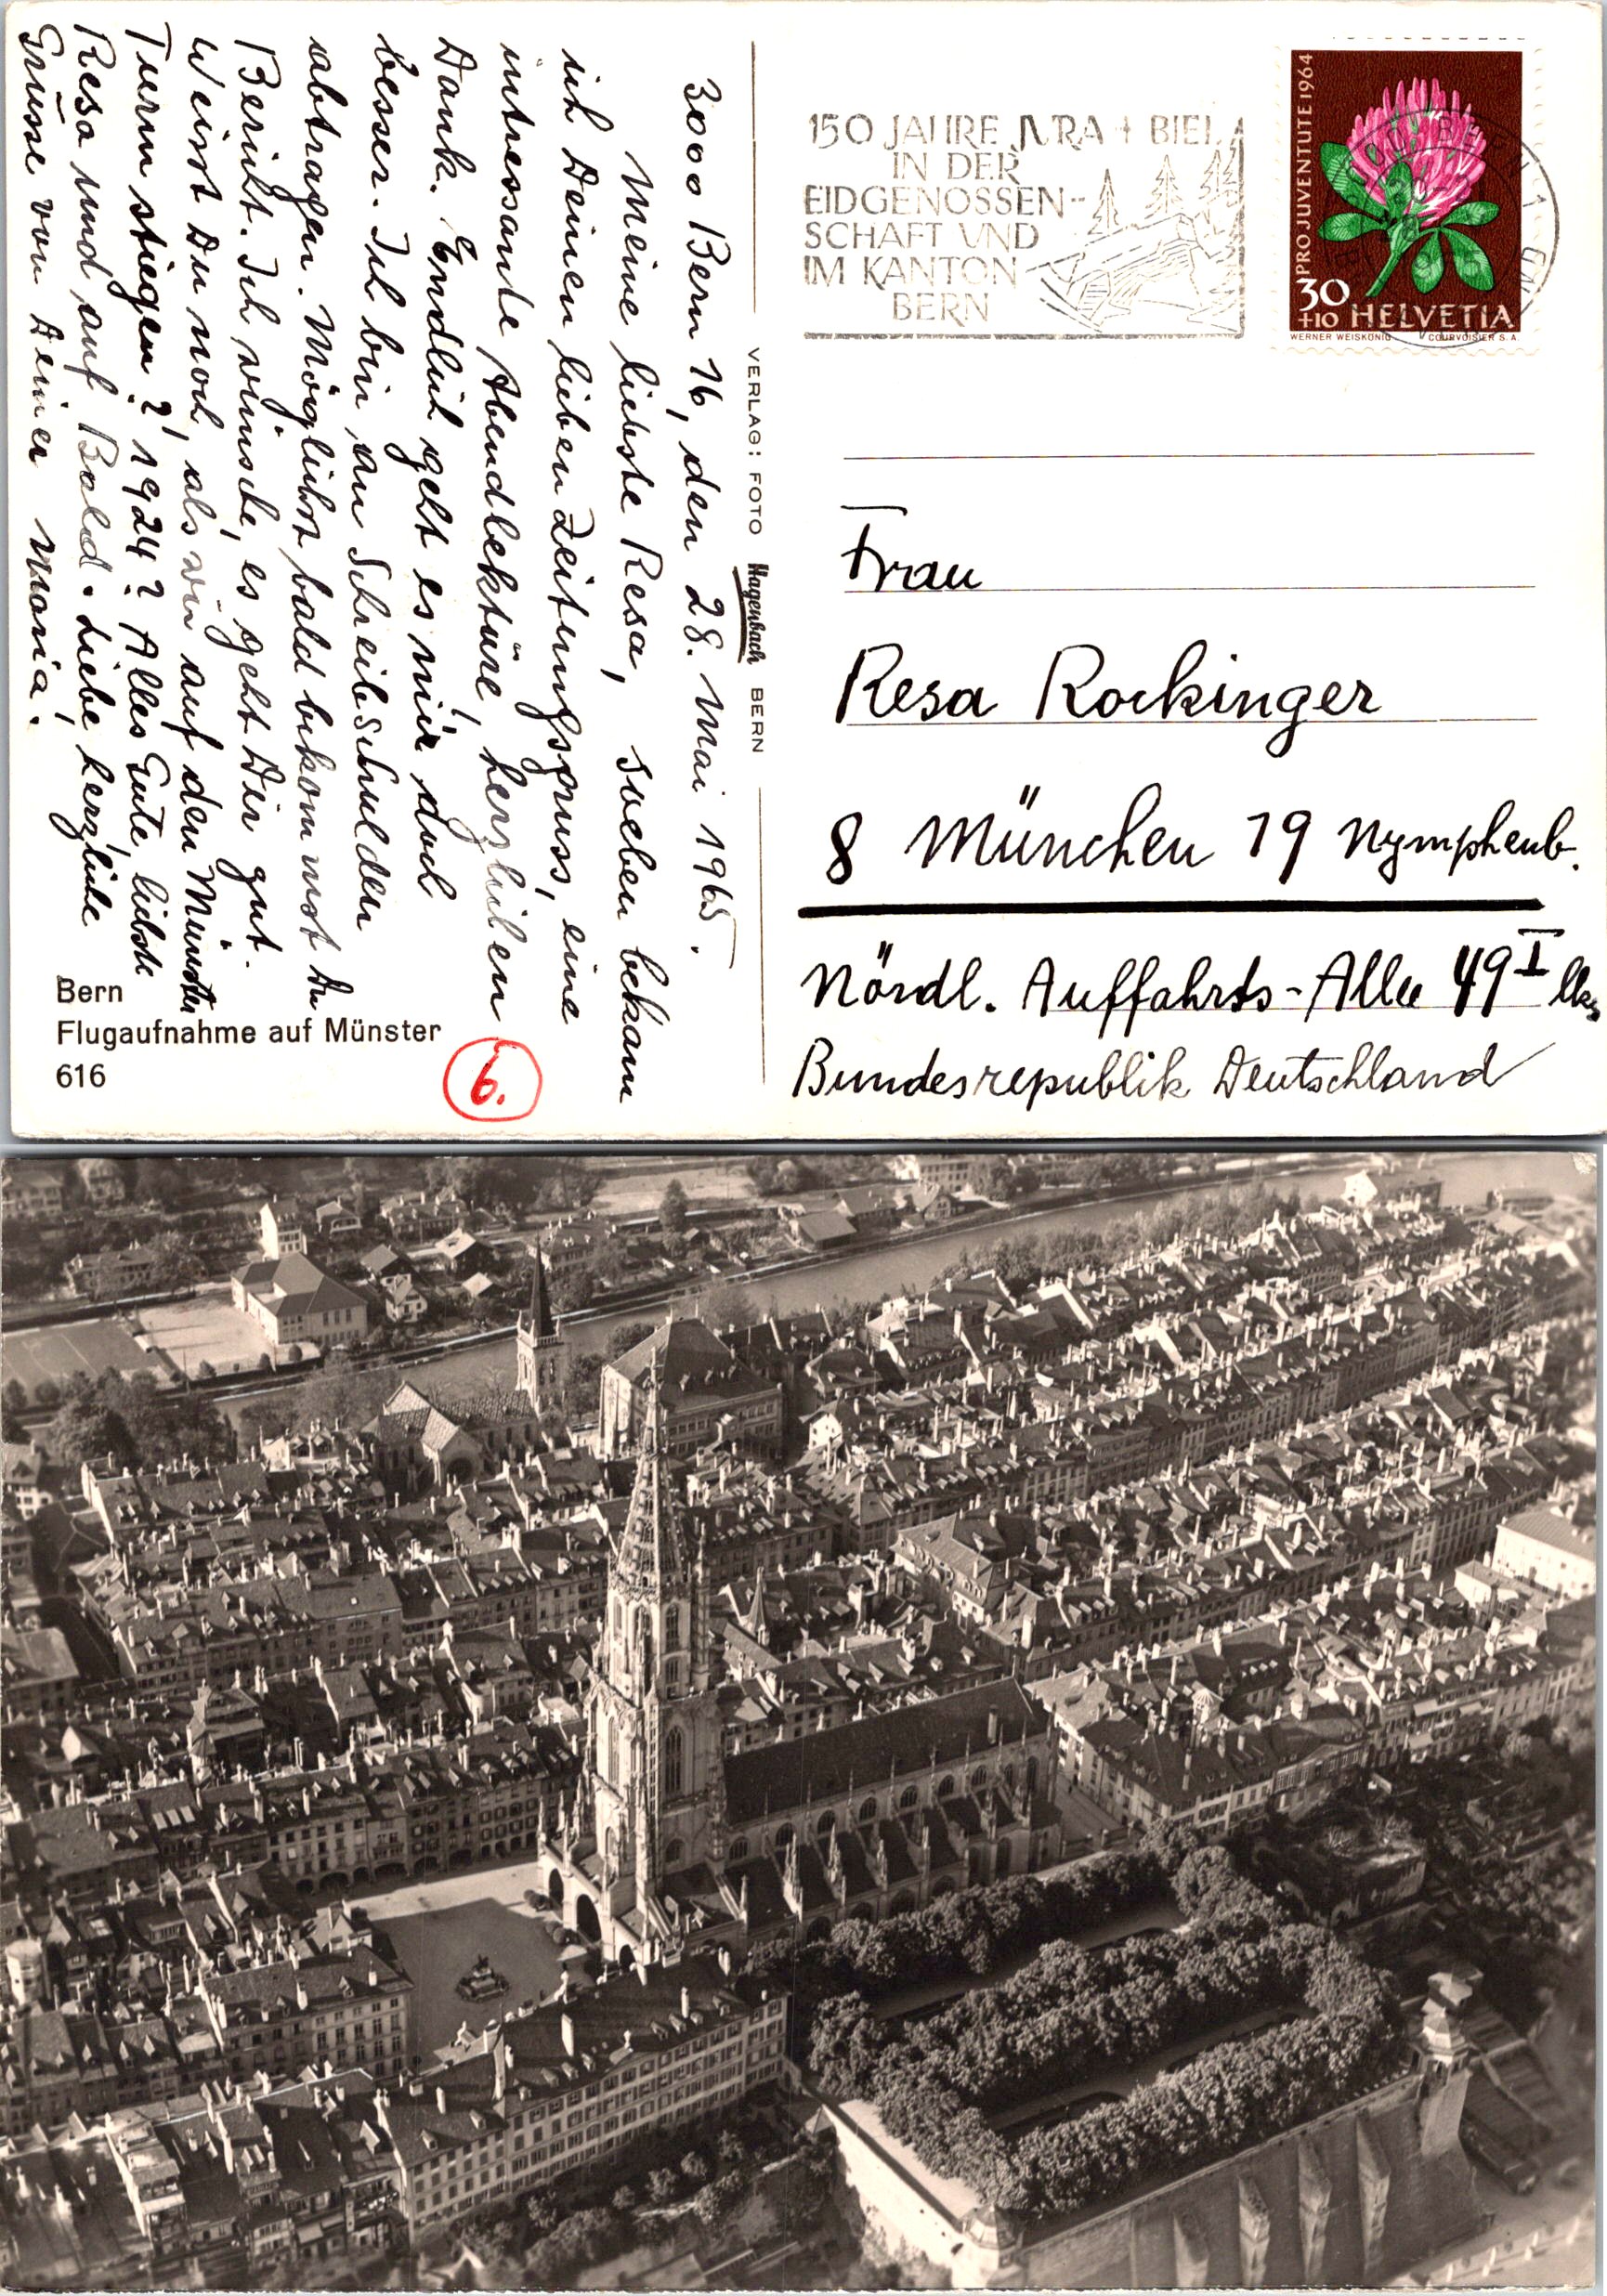 3000 Bern 16, den 28. Mai 1965.
Meine liebste Resa, soeben bekam
ich Deinen lieben Zeitungsgruss, eine
intressante Abendlektüre, herzlichen
Dank. Endlich geht es mir doch
besser. Ich bin am Schreibschulden
abtragen. Möglichst bald bekommst Du
Bericht. Ich wünsche, es geht Dir gut.
Weisst Du noch, als wir auf den Münster
Turm stiegen? 1924? Alles Gute, liebste
Resa und auf Bald. Liebe, herzliche
Grüsse von Deiner Maria.
Bern
Flugaufnahme auf Münster
616
6.
VERLAG: FOTO Hagenbach BERN
150 JAHRE JURA + BIEL
IN DER
EIDGENOSSEN-
SCHAFT UND
IM KANTON
BERN
PRO JUVENTUTE 1964
30
+10 HELVETIA
WERNER WEISKÖNIG COURVOISIER S.A.
Frau
Resa Rockinger
8 München 19 Nymphenb.
Nördl. Auffahrts-Allee 49 I lks
Bundesrepublik Deutschland